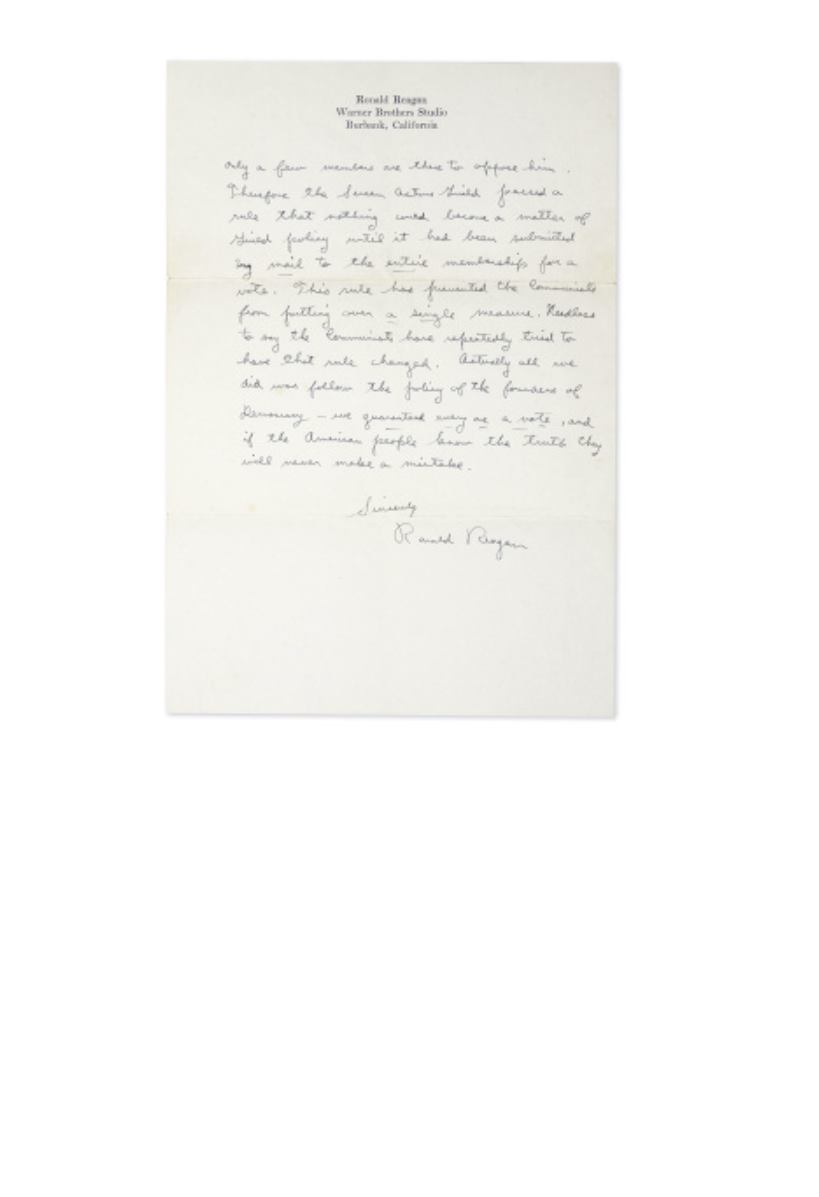 Ronald Reagan
Warner Brothers Studio
Burbank, California
only a few members are there to oppose him.
Therefore the Screen Actors Guild passed a
rule that nothing could become a matter of
Guild policy until it had been submitted
by mail to the entire membership for a
vote. This rule has prevented the Communists
from putting over a single measure. Needless
to say the Communists have repeatedly tried to
have that rule changed. Actually all we
did was follow the policy of the founders of
Democracy – we guaranteed every one a vote, and
if the American people know the truth they
will never make a mistake.
Sincerely
Ronald Reagan